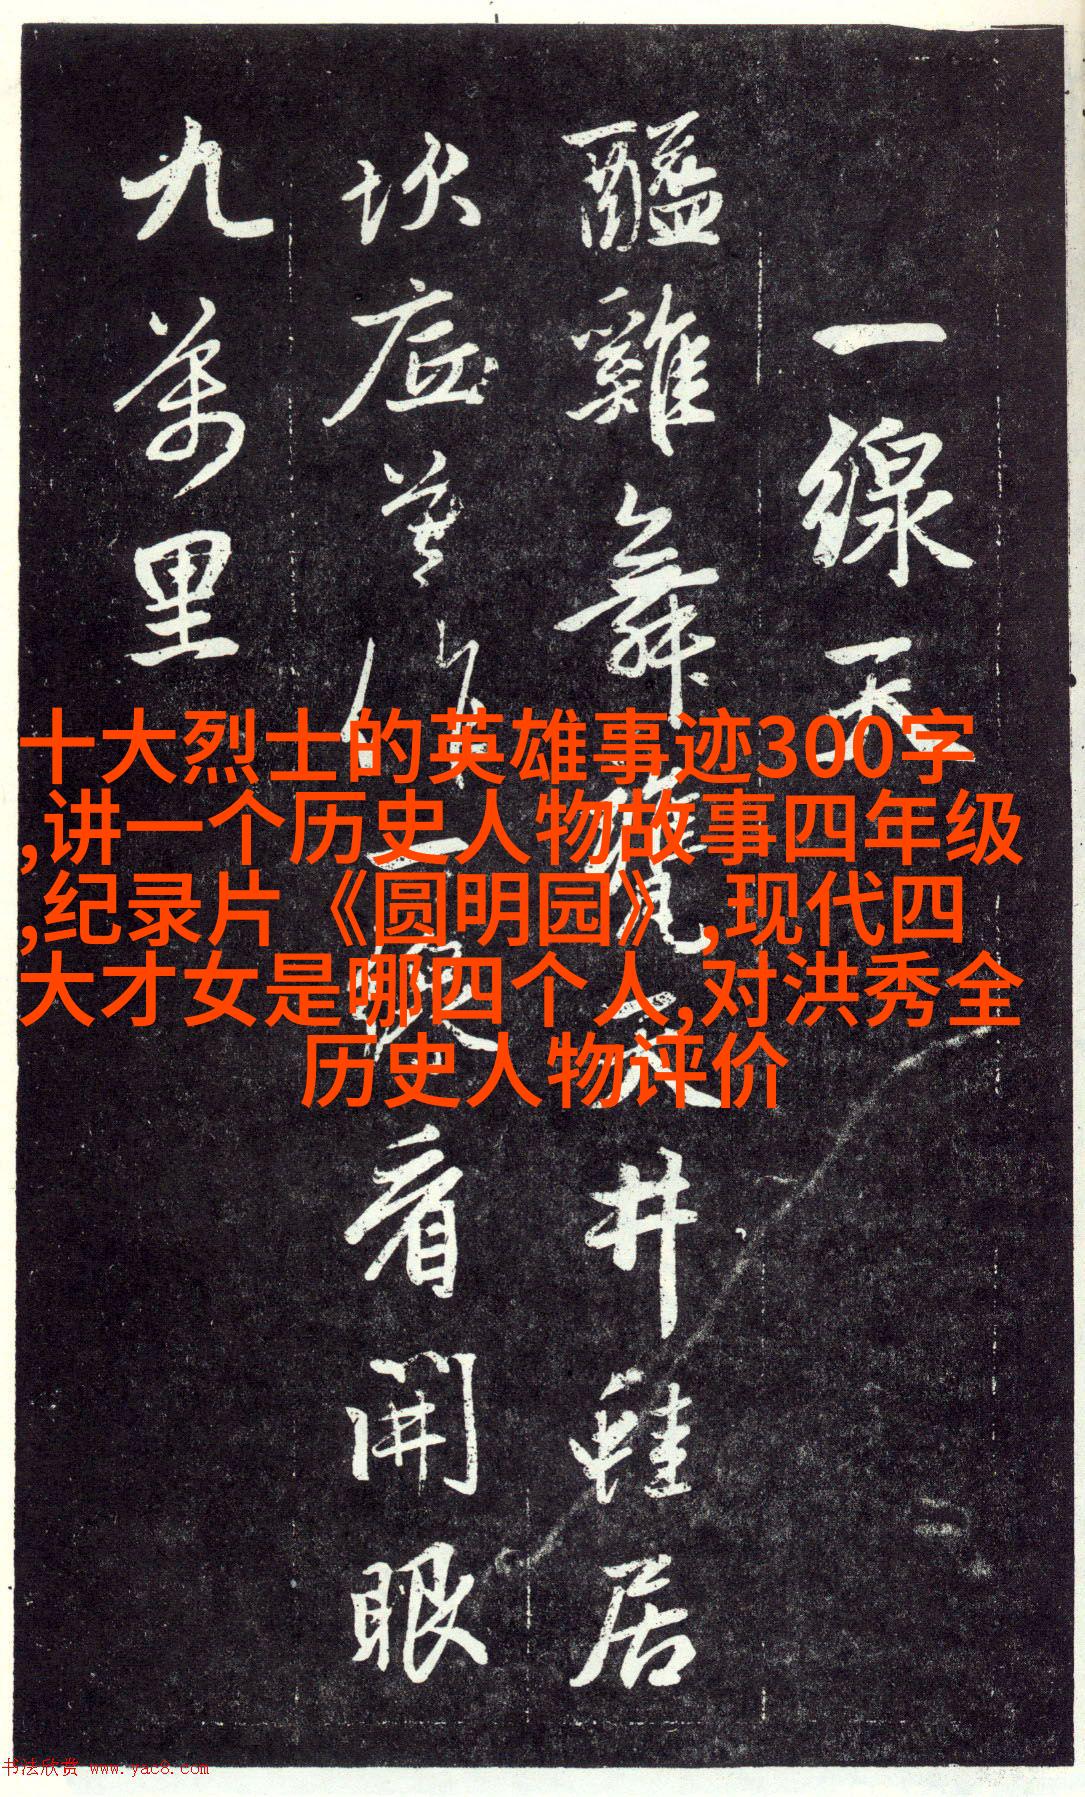 一線天
醯雞舞甕天井蛙居
坎底莫作一線看開眼
九萬里
十大烈士的英雄事迹300字
,讲一个历史人物故事四年级
,纪录片《圆明园》,现代四
大才女是哪四个人,对洪秀全
历史人物评价
书法欣赏 www.yac8.com